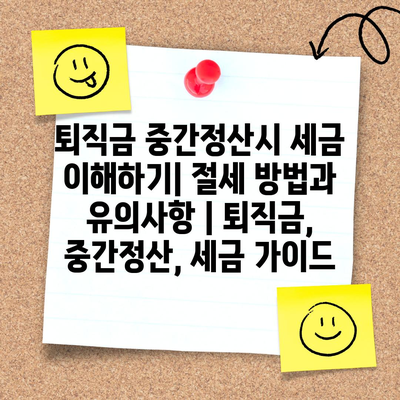 퇴직금 중간정산시 세금
이해하기| 절세 방법과
유의사항 | 퇴직금,
중간정산, 세금 가이드